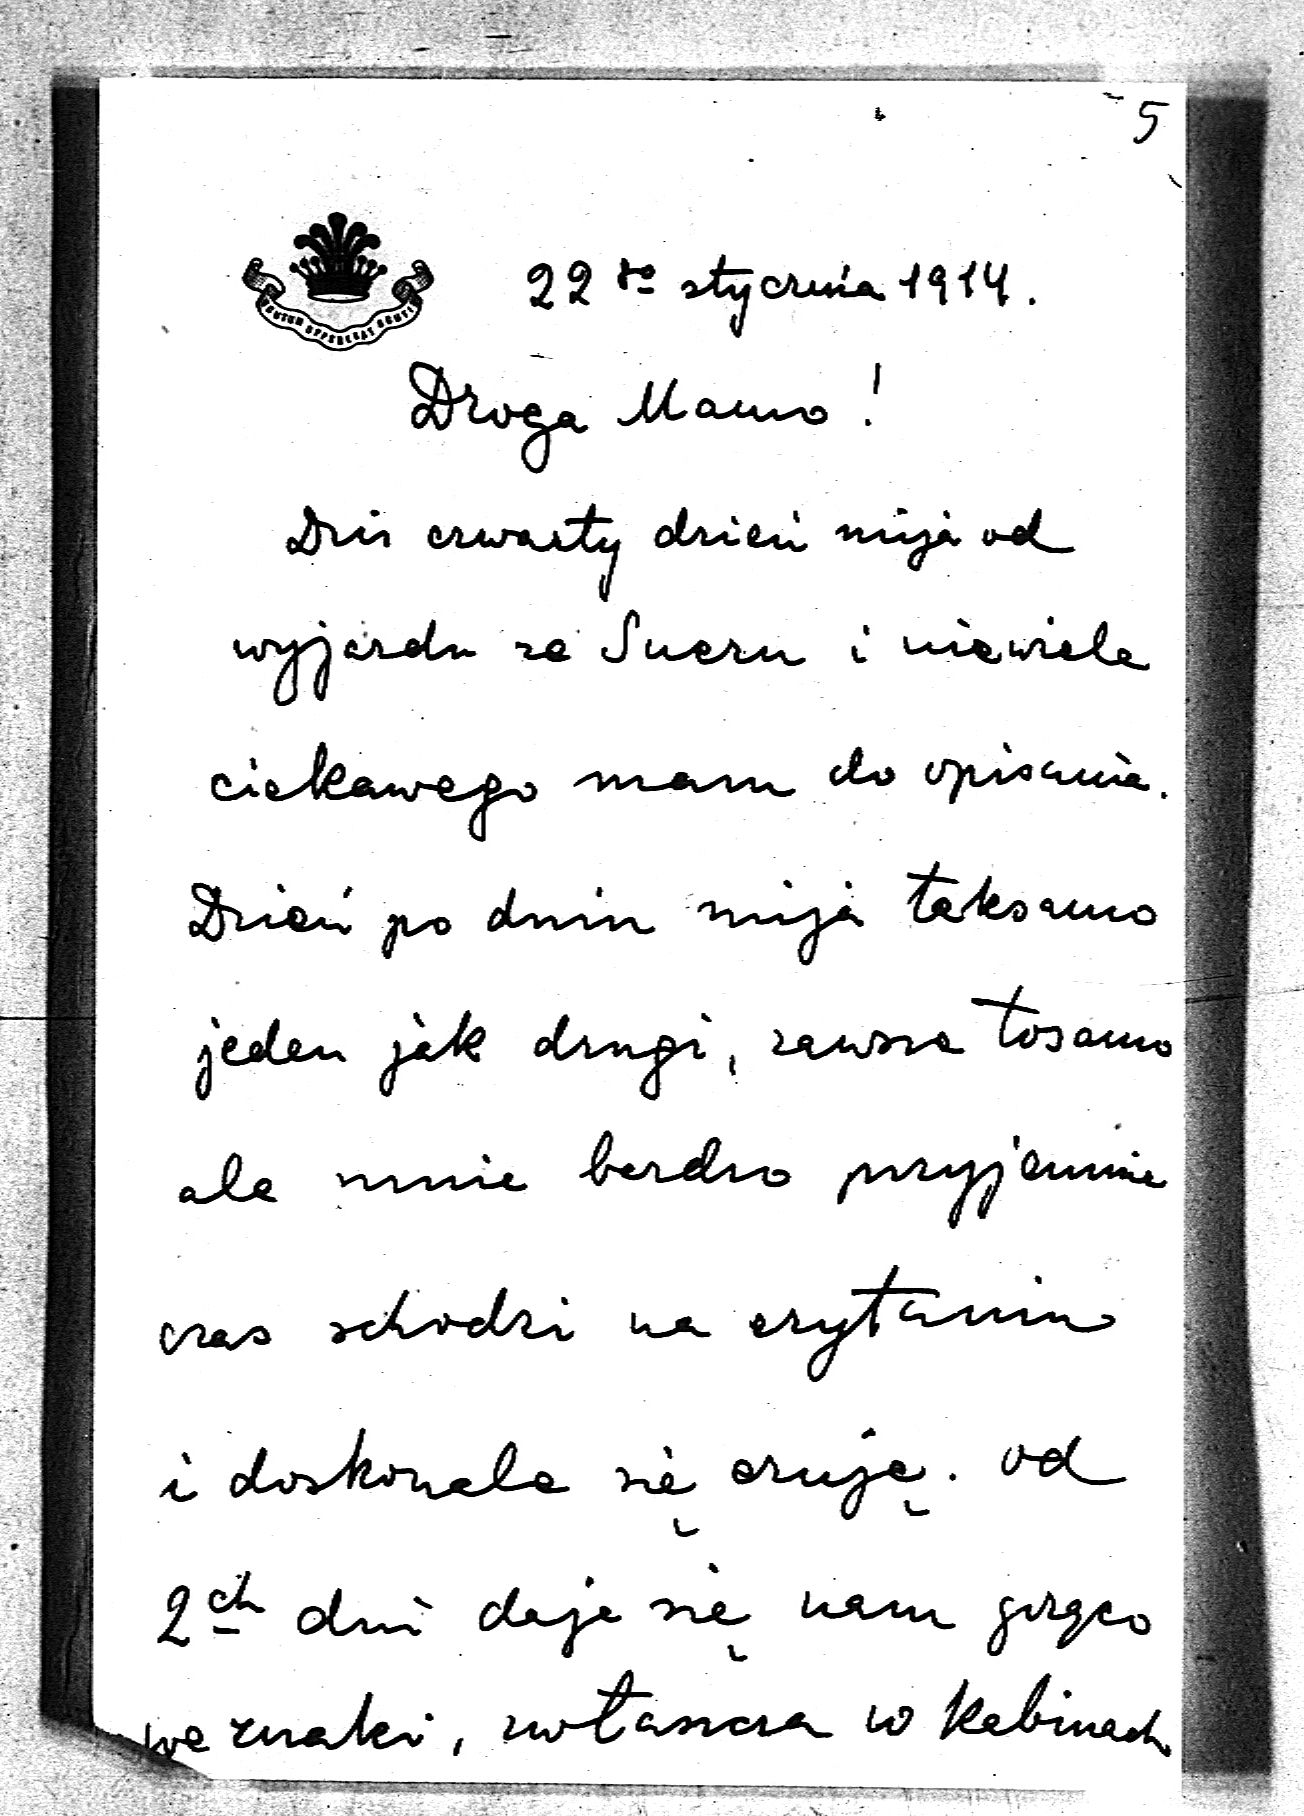 5
22go stycznia 1914.
Droga Mamo!
Dziś czwarty dzień mija od
wyjazdu ze Suezu i niewiele
ciekawego mam do opisania.
Dzień po dniu mija taksamo
jeden jak drugi, zawsze tosamo
ale mnie bardzo przyjemnie
czas schodzi na czytaniu
i doskonale się czuję. od
2ch dni daje się nam gorąco
we znaki, zwłaszcza w kabinach